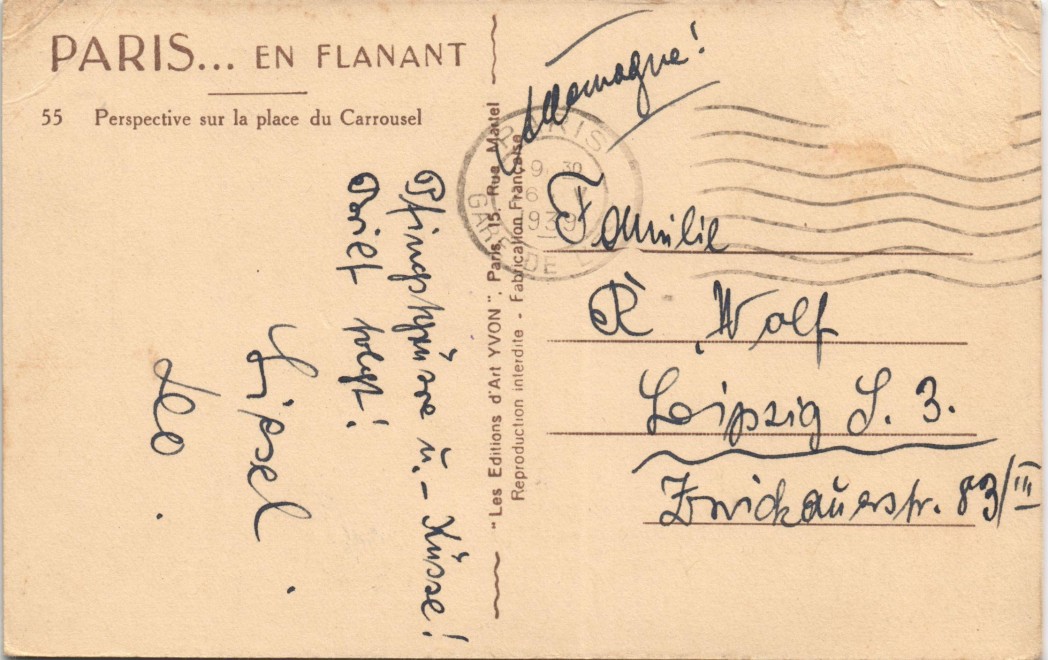 PARIS... EN FLANANT
55 Perspective sur la place du Carrousel
Pfingstgrüsse u. - Küsse!
Brief folgt!
Leo.
"Les Editions d'Art YVON", Paris, 15, Rue Martel
Reproduction interdite - Fabrication Française
Allemagne!
PARIS
GARE DE L
9 30
6
1939
Familie
R. Wolf
Leipzig S. 3.
Zwickauerstr. 83/III